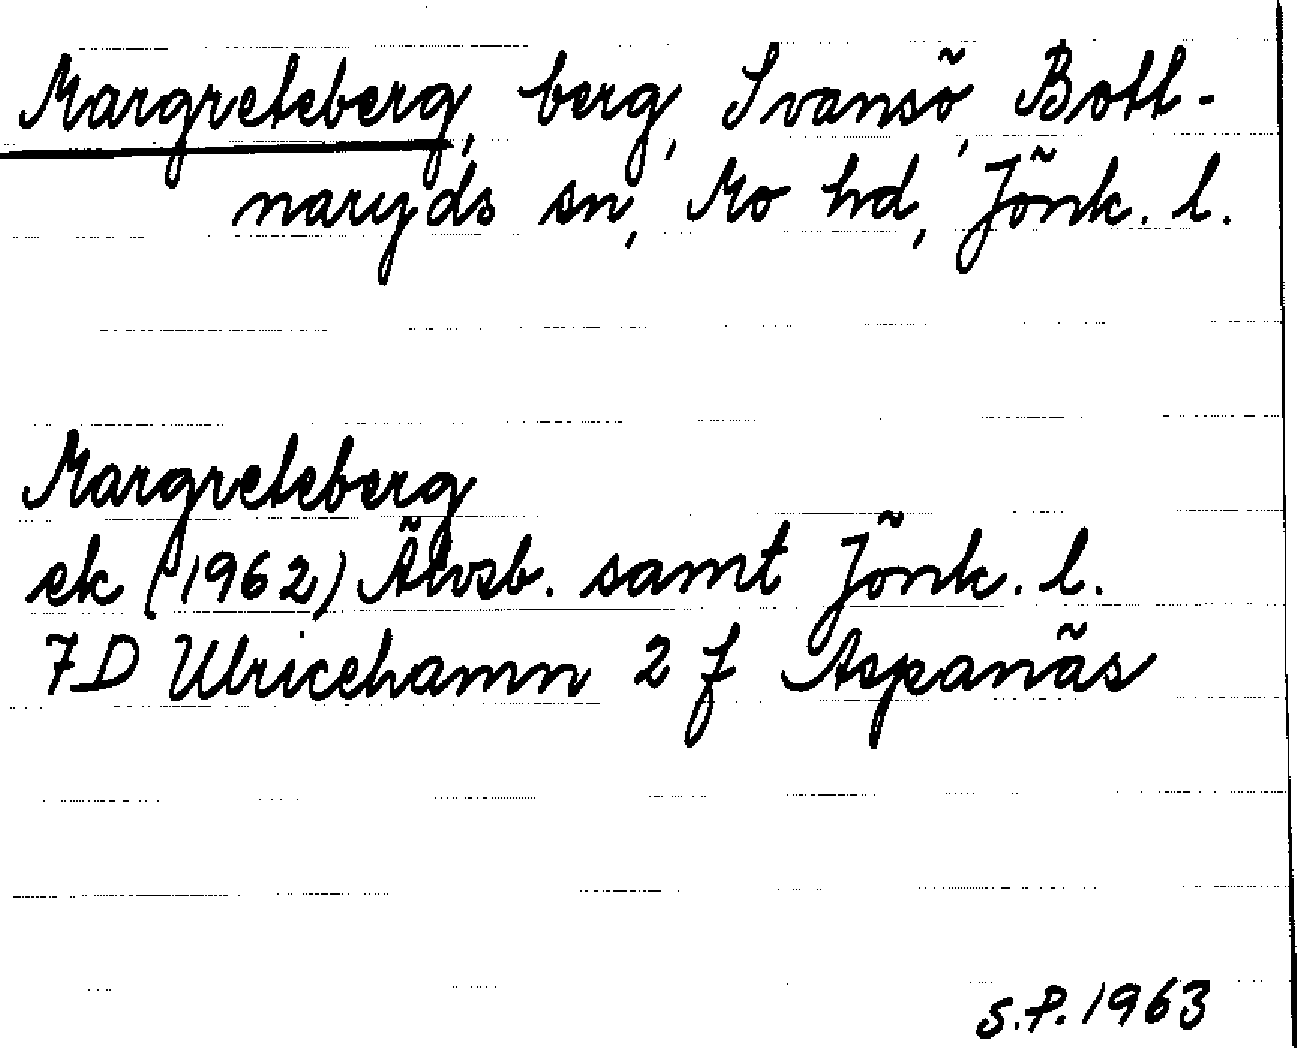 Margreteberg, berg, Ivansö, Bott-
naryds sn, Mo hd, Jönk. l.
Margreteberg
ek (1962) Älvsb. samt Jönk. l.
7D Ulricehamn 2 f Aspanäs
S.P. 1963